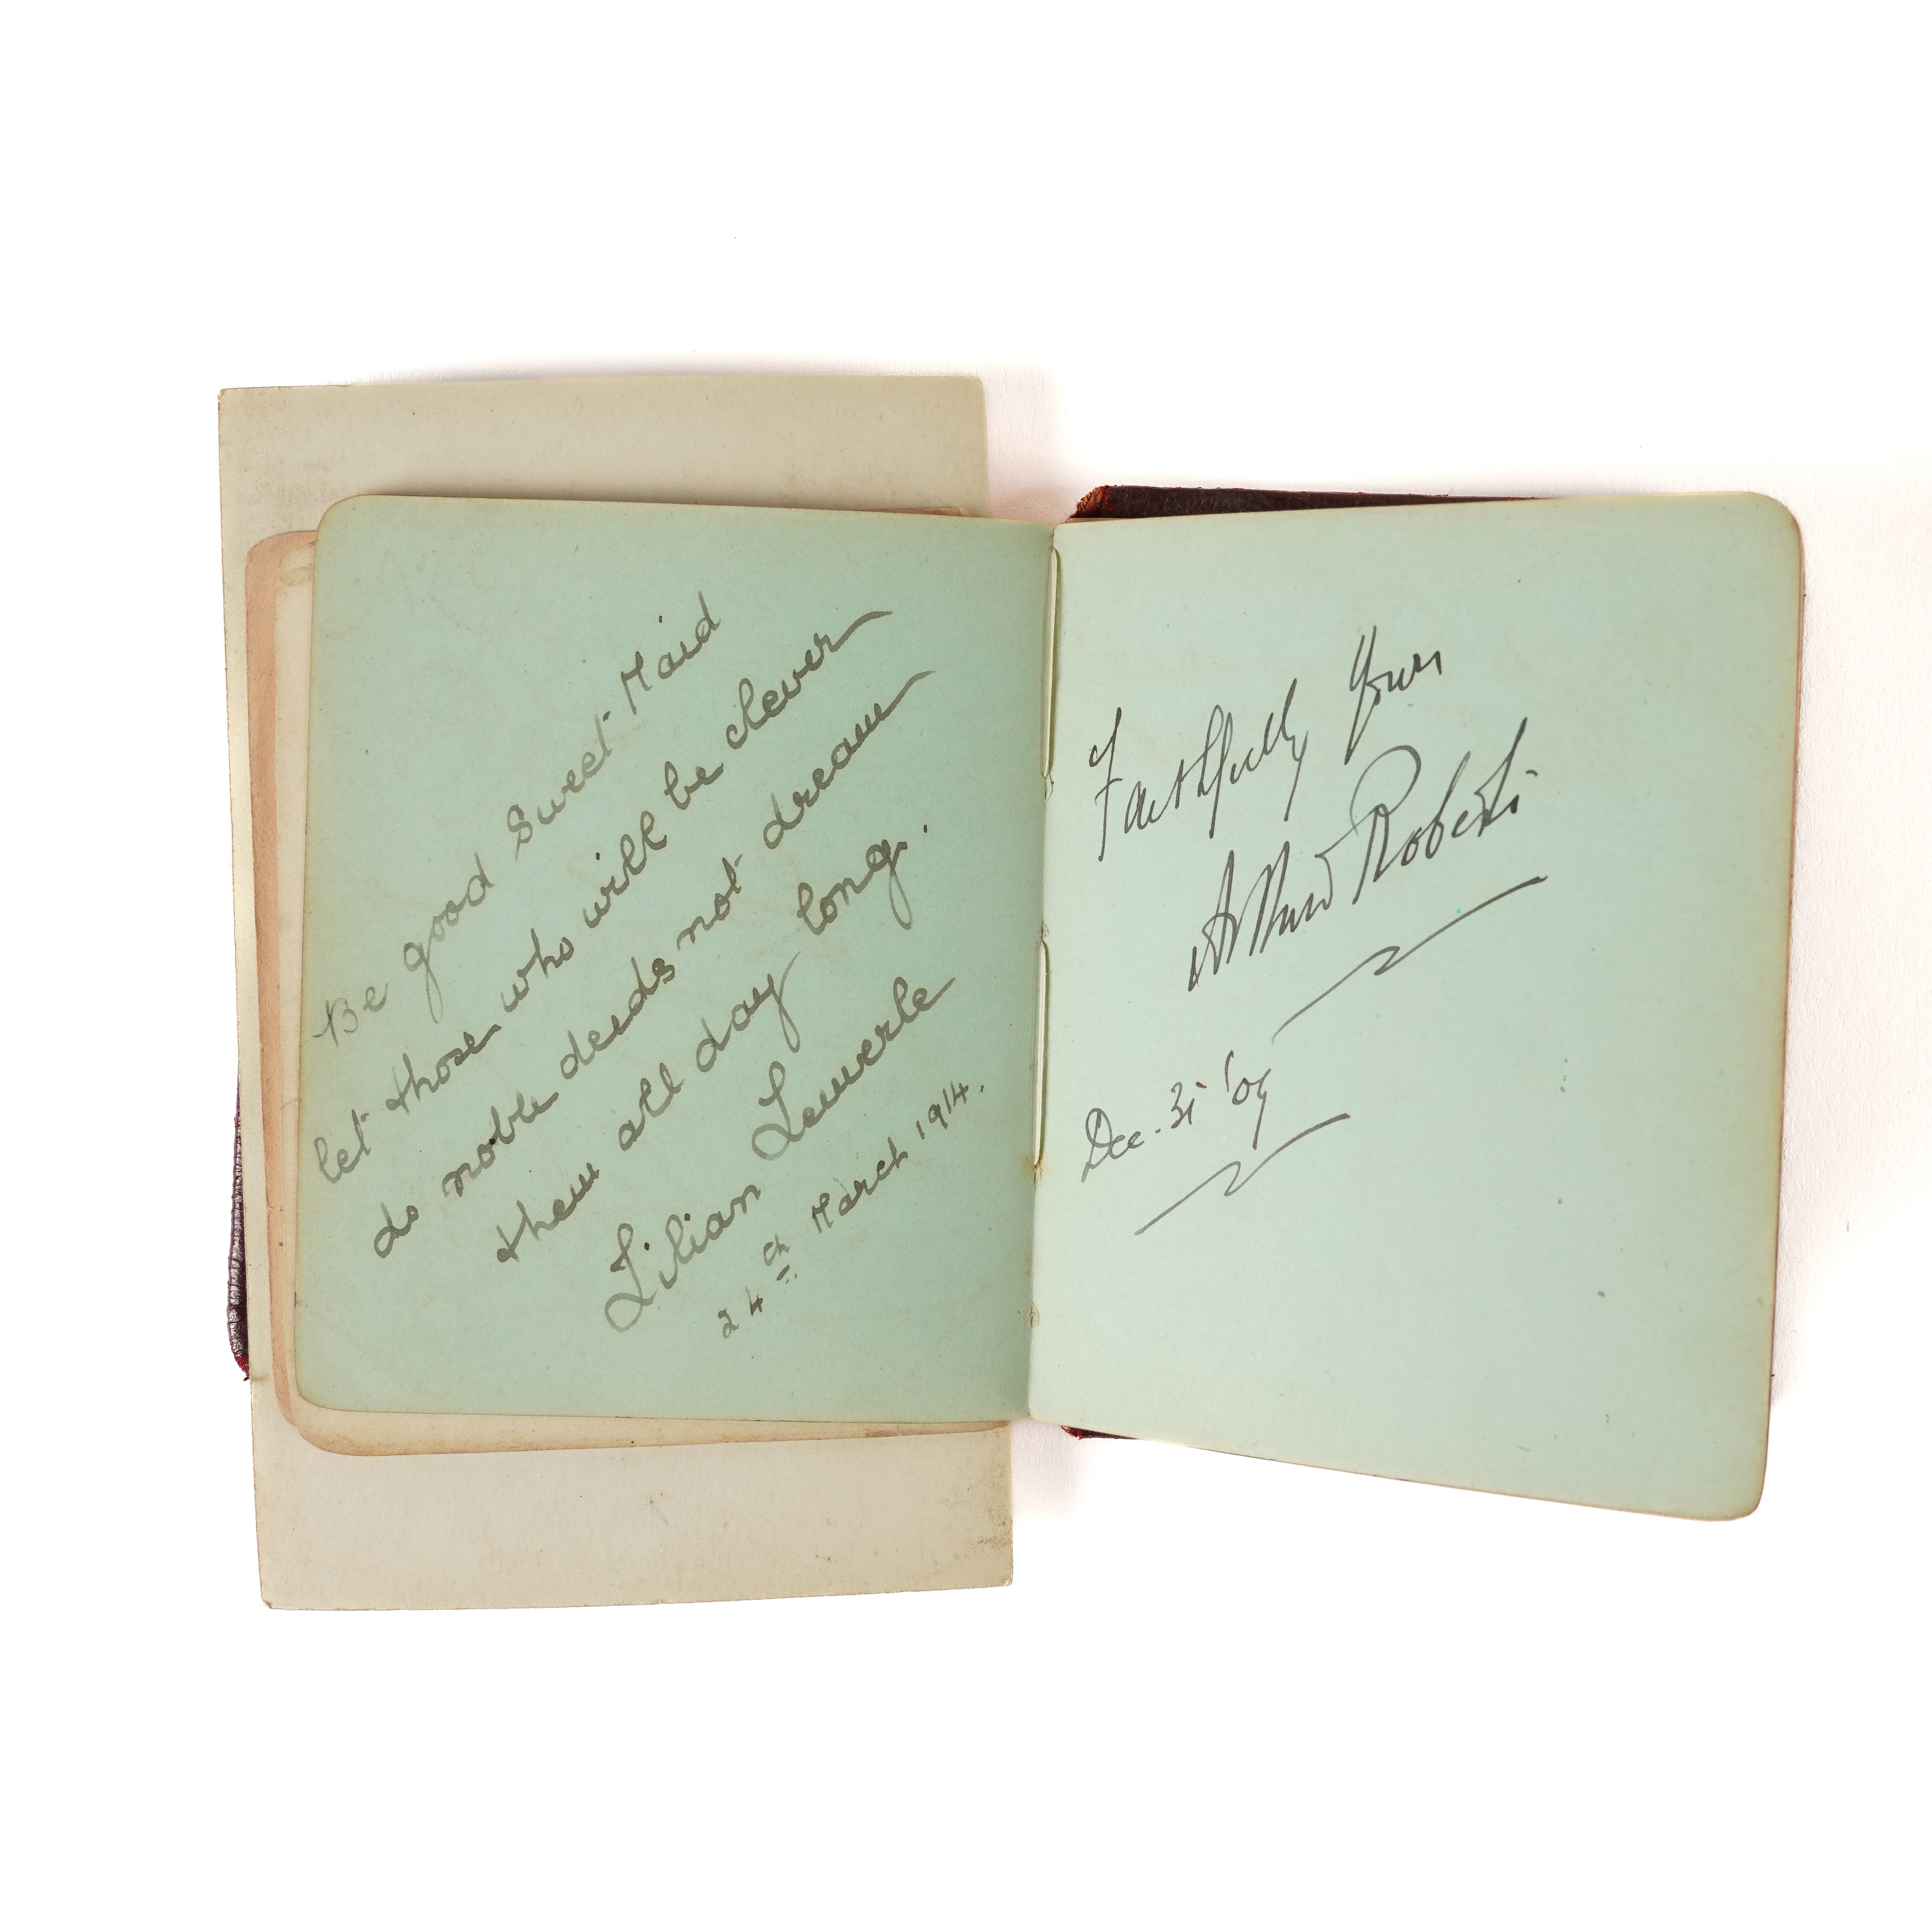 Be good Sweet Maid
let those who will be clever
do noble deeds not dream
them all day long.
Lilian Lewerle
24th March 1914.
Faithfully Yours
Arthur Roberts
Dec. 31 '09